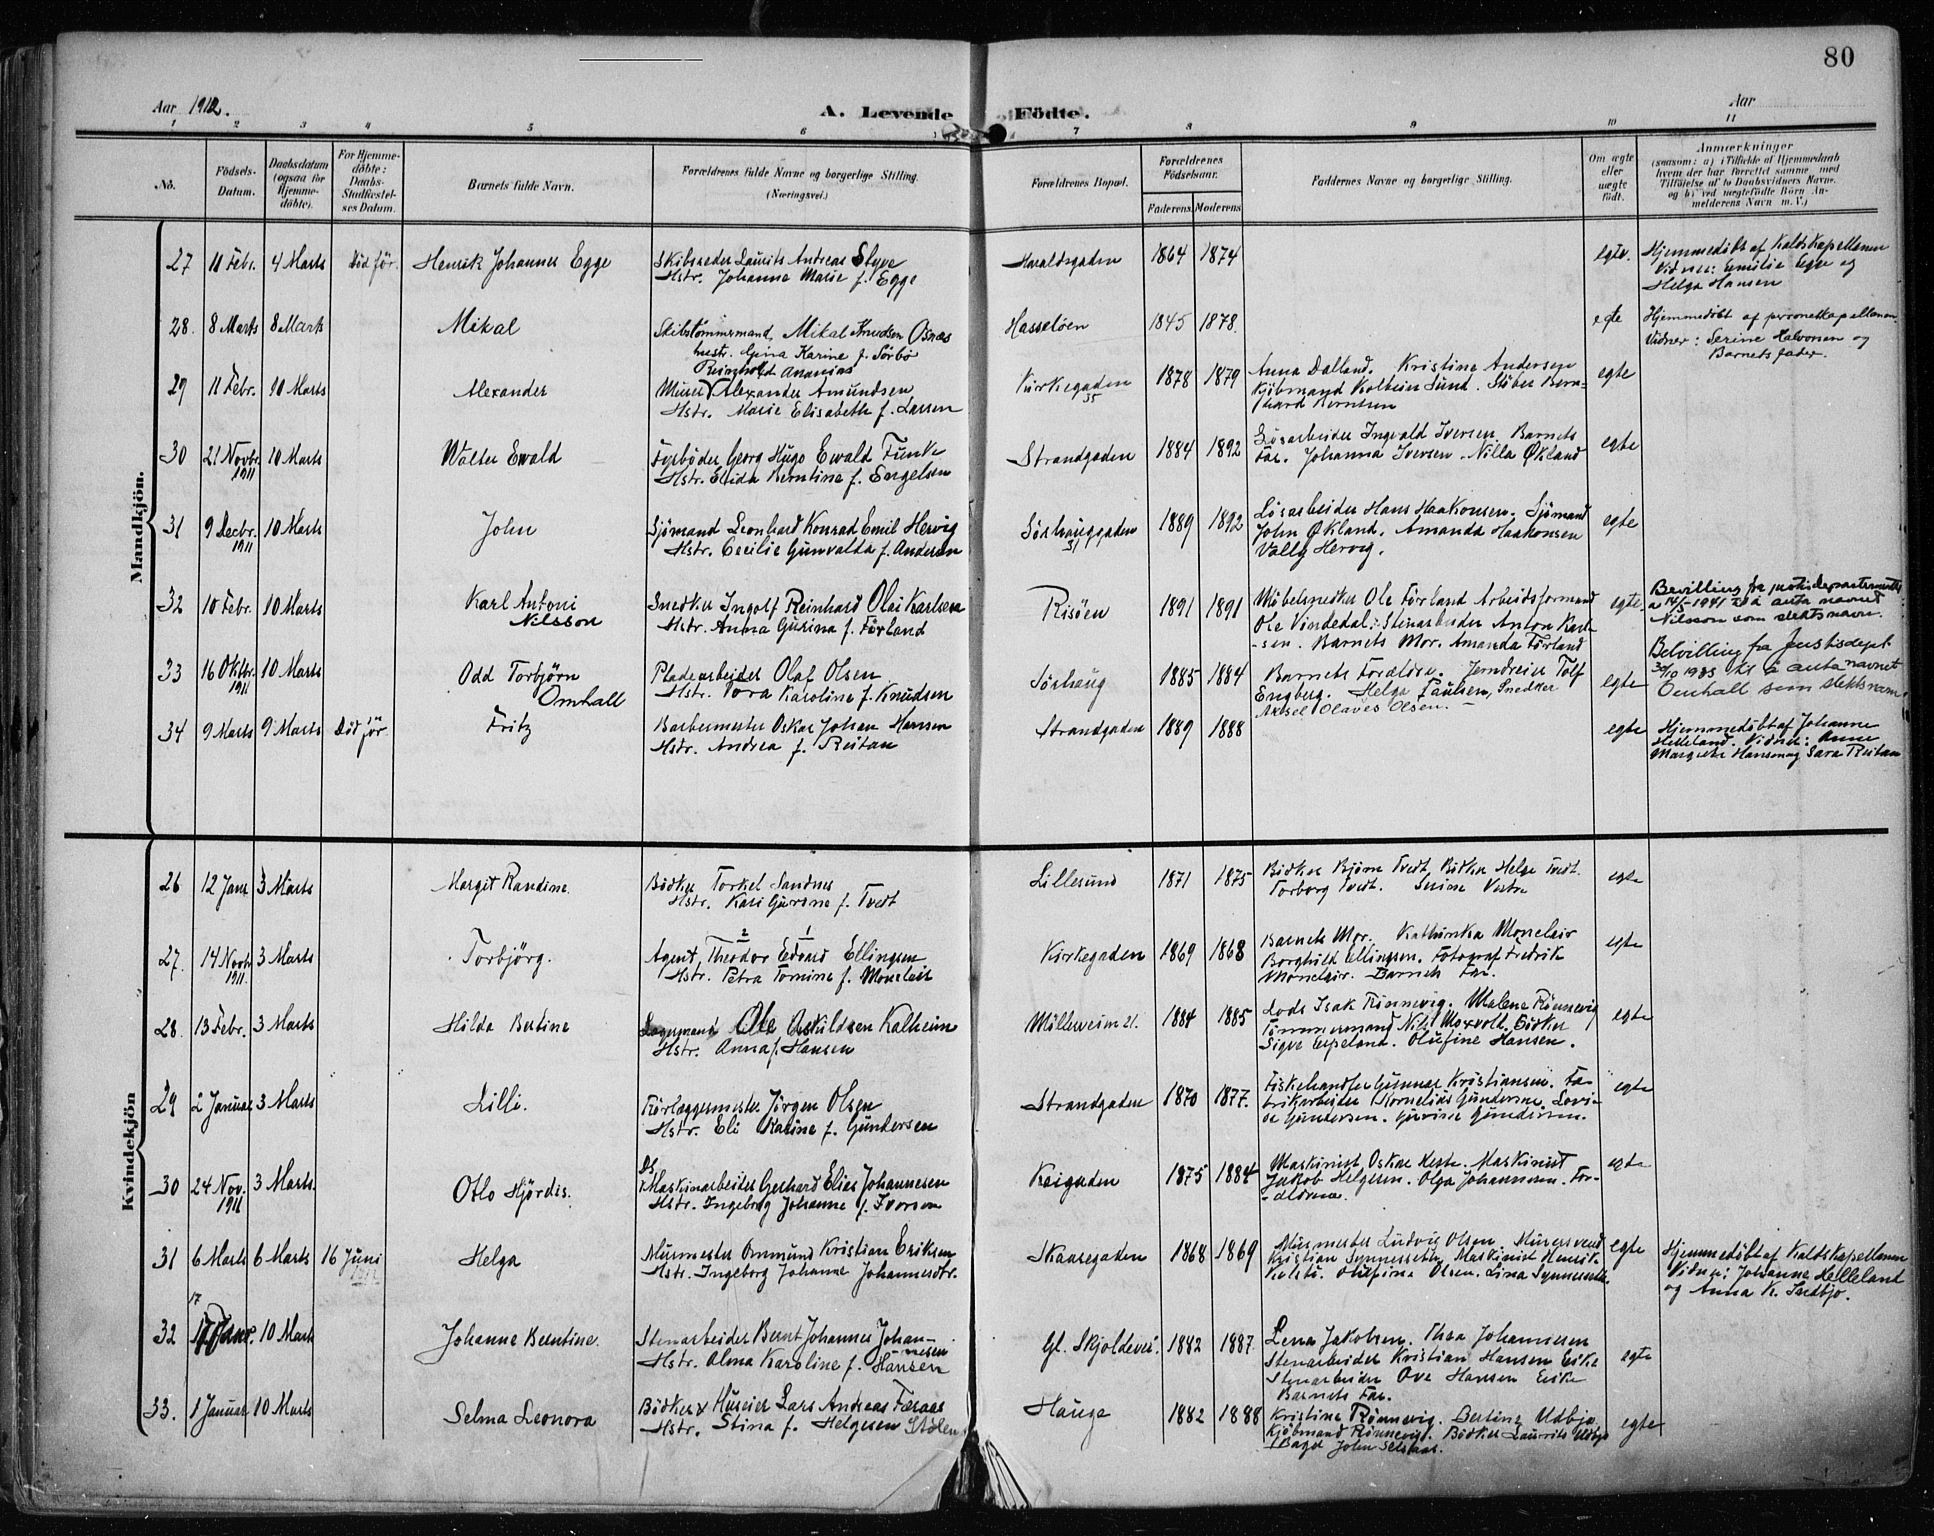 80
Aar 1912.
A. Levende Födte.
Aar
1 2 3 4 5 6 7 8 9 10 11
No.
Födsels-Datum.
Daabsdatum (ogsaa for Hjemmedöbte).
For Hjemmedöbte: Daabs-Stadfæstelses Datum.
Barnets fulde Navn.
Forældrenes fulde Navne og borgerlige Stilling. (Næringsvei.)
Forældrenes Bopæl.
Forældrenes Födselsaar.
Faderens Moderens
Faddernes Navne og borgerlige Stilling.
Om ægte eller uægte födt.
Anmærkninger
(saasom: a) i Tilfælde af Hjemmedaab
hvem der har forrettet samme med
Tilföielse af to Daabsvidners Navne.
og b) ved uægtefödte Börn An-
melderens Navn m. V.)
Mandkjön.
27 11 Febr. 4 Marts Död för. Henrik Johannes Egge
Skibsreder Laurits Andreas Styve
Hstr. Johanne Marie f. Egge
Haraldsgaden 1864 1874 egte.
Hjemmedøbt af Kalds Kapellanen
Vidner: Emilie Egge og
Helga Hansen
28. 8 Marts 8 Marts Mikal
Skibstømmermand, Mikal Knudsen Osnes
hustr. Gina Karine f. Sørbø
Hasseløen 1845 1878. egte
Hjemmedøbt af personelkapellanen
Vidner: Serine Halvorsen og
Barnets fader.
29 11 Febr. 10 Marts Alexander
Reinholdt Ananias
Murer Alexander Amundsen
Hstr. Marie Elisabeth f. Larsen
Kirkegaden 35 1878 1879
Anna Dalland. Kristine Andersen
Kjøbmand Kolbein Sund. Støber Bern-
hard Berntsen
egte
30 21 Novbr. 1911 10 Marts Walter Ewald
Fyrbøder Georg Hugo Ewald Funke
Hstr. Elida Berntine f. Engelsen
Strandgaden 1884 1892
Løsarbeider Ingvald Iversen. Barnets
Far. Johanna Iversen. Nilla Økland
egte
31 9 Decbr. 1911 10 Marts John
Sjömand Leonhard Konrad Emil Hervig
Hstr. Cecilie Gunvalda f. Andersen
Sørhauggaden 31 1889 1892
Løsarbeider Hans Haakonsen. Sjømand
John Økland. Amanda Haakonsen
Vally Hervig.
egte
32 10 Febr. 10 Marts Karl Antoni
Nilsson
Snedker Ingolf Reinhard Olai Karlsen
Hstr. Anna Gurina f. Förland
Risöen 1891 1891
Møbelsnedker Ole Förland Arbeidsformand
Ole Vindedal. Stenarbeider Anton Karl-
sen. Barnets Mor. Amanda Förland
egte
Bevilling fra justisdepartementet
a 14/5-1941 til å anta navnet
Nilsson som slektsnavn.
33 16 Oktbr. 1911 10 Marts Odd Torbjörn
Omhall
Pladearbeider Olaf Olsen
Hstr. Tora Karoline f. Knudsen
Sörhaug 1885 1884
Barnets Forældre. Jerndreier Tolf
Engberg. Helga Paulsen, Snedker
Aksel Olaves Olsen.
egte
Belvilling fra Justisdept
30/10 1935 til å anta navnet
Omhall som slektsnavn.
34 9 Marts 9 Marts Död för Fritz
Barbermester Oskar Johan Hansen
Hstr. Andrea f. Reitan
Strandgaden 1889 1888 egte
Hjemmedöbt af Johanne
Helleland. Vidner: Anne
Margrethe Hansen og Sara Reitan
Kvindekjön
26 12 Janr 3 Marts Margit Randine
Bødker Torkel Sandnes
Hstr. Kari Gurine f. Tvedt
Lillesund 1871 1875
Bødker Bjørn Tvedt. Bødker Helge Tvedt.
Torborg Tvedt. Serine Vestre
egte
27. 14 Novbr. 1911. 3 Marts Torbjörg.
Agent, Theodor Edvard Ellingsen
Hstr. Petra Tomine f. Monclair
Kirkegaden 1869 1868
Barnets Mor. Kathinka Monclair
Borghild Ellingsen. Fotograf Fredrik
Monclair. Barnets Far.
egte
28. 13 Febr. 3 Marts Hilda Bertine
Lagermand Ole Oskildsen Kalheim
Hstr. Anna f. Hansen
Möllerveien 21. 1884 1885
Lods Isak Rönnevig. Malene Rönnevig
Tømmermand Nils Moxvold. Bödker
Sigve Espeland. Olufine Hansen.
egte
29 2 Januar 3 Marts Lilli.
Rörlæggermester Jörgen Olsen
Hstr. Eli Karine f. Gundersen
Strandgaden 1870 1877.
Fiskehandler Gunnar Kristiansen. Fa-
brikarbeider Kornelius Gundersen. Lovi-
se Gundersen. Gurine Gundersen.
egte
30 24 Nov. 1911 3 Marts. Otlo Hjördis.
Ds. Maskinarbeider Gerhard Elias Johannesen
Hstr. Ingeborg Johanne f. Iversen
Kaigaden 1875 1884
Maskinist Oskar Heste. Maskinist
Jakob Helgesen. Olga Johannesen. For-
ældrene.
egte
31 6 Marts 6 Marts 16 Juni 1912 Helga
Murmester Ommund Kristian Eriksen
Hstr. Ingeborg Johanne Johannesdtr.
Skaaregaden 1868 1869
Murmester Ludvig Olsen. Murersvend
Kristian Synnesvedt. Maskinist Henrik
Kolstø. Olufine Olsen. Lina Synnesvedt
egte
Hjemmedöbt af Kalds Kapellanen
Vidner: Johanne Helleland
og Anna K. Indbjo.
32 17 Janr. 10 Marts Johanne Berntine.
Stenarbeider Bernt Johannes Johan-
nesen
Hstr. Alma Karoline f. Hansen
Gl. Skjoldevei. 1882 1887.
Lena Jakobsen. Thea Johannesen
Stenarbeider Kristian Hansen Eike
Stenarbeider Ove Hansen Eike
Barnets Far.
egte
33. 1 Januar 10 Marts Selma Leonora
Bødker & Huseier Lars Andreas Færaas
Hstr. Stina f. Helgesen Stölen
Hauge 1882 1888
Kristine Rönnevig. Bertine Udbjo.
Kjöbmand Rönnevig. Bödker Laurits Udbjo
Bager John Selsaas.
egte